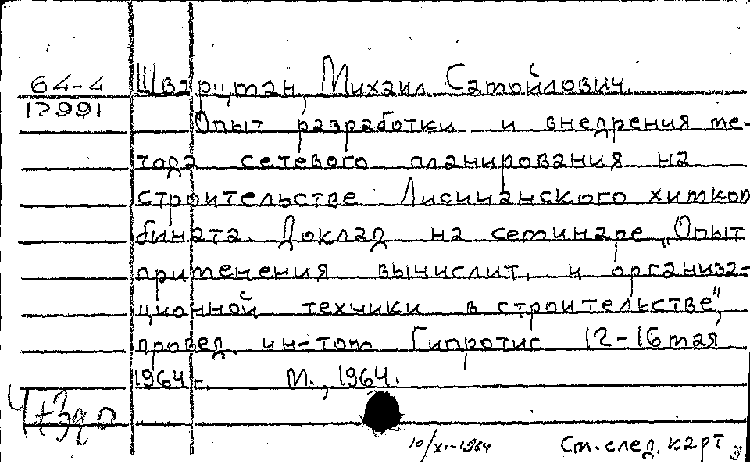 64-4
Шварцман, Михаил Самойлович.
12991
Опыт разработки и внедрения ме-
тода сетевого планирования на
строительстве Лисичанского химком
бината. Доклад на семинаре „Опыт
применения вычислит. и организа-
ционной техники в строительстве",
провед. ин-том Гипротис 12-16 мая
1964 г. М., 1964.
10/XI-1964 См. след. карт